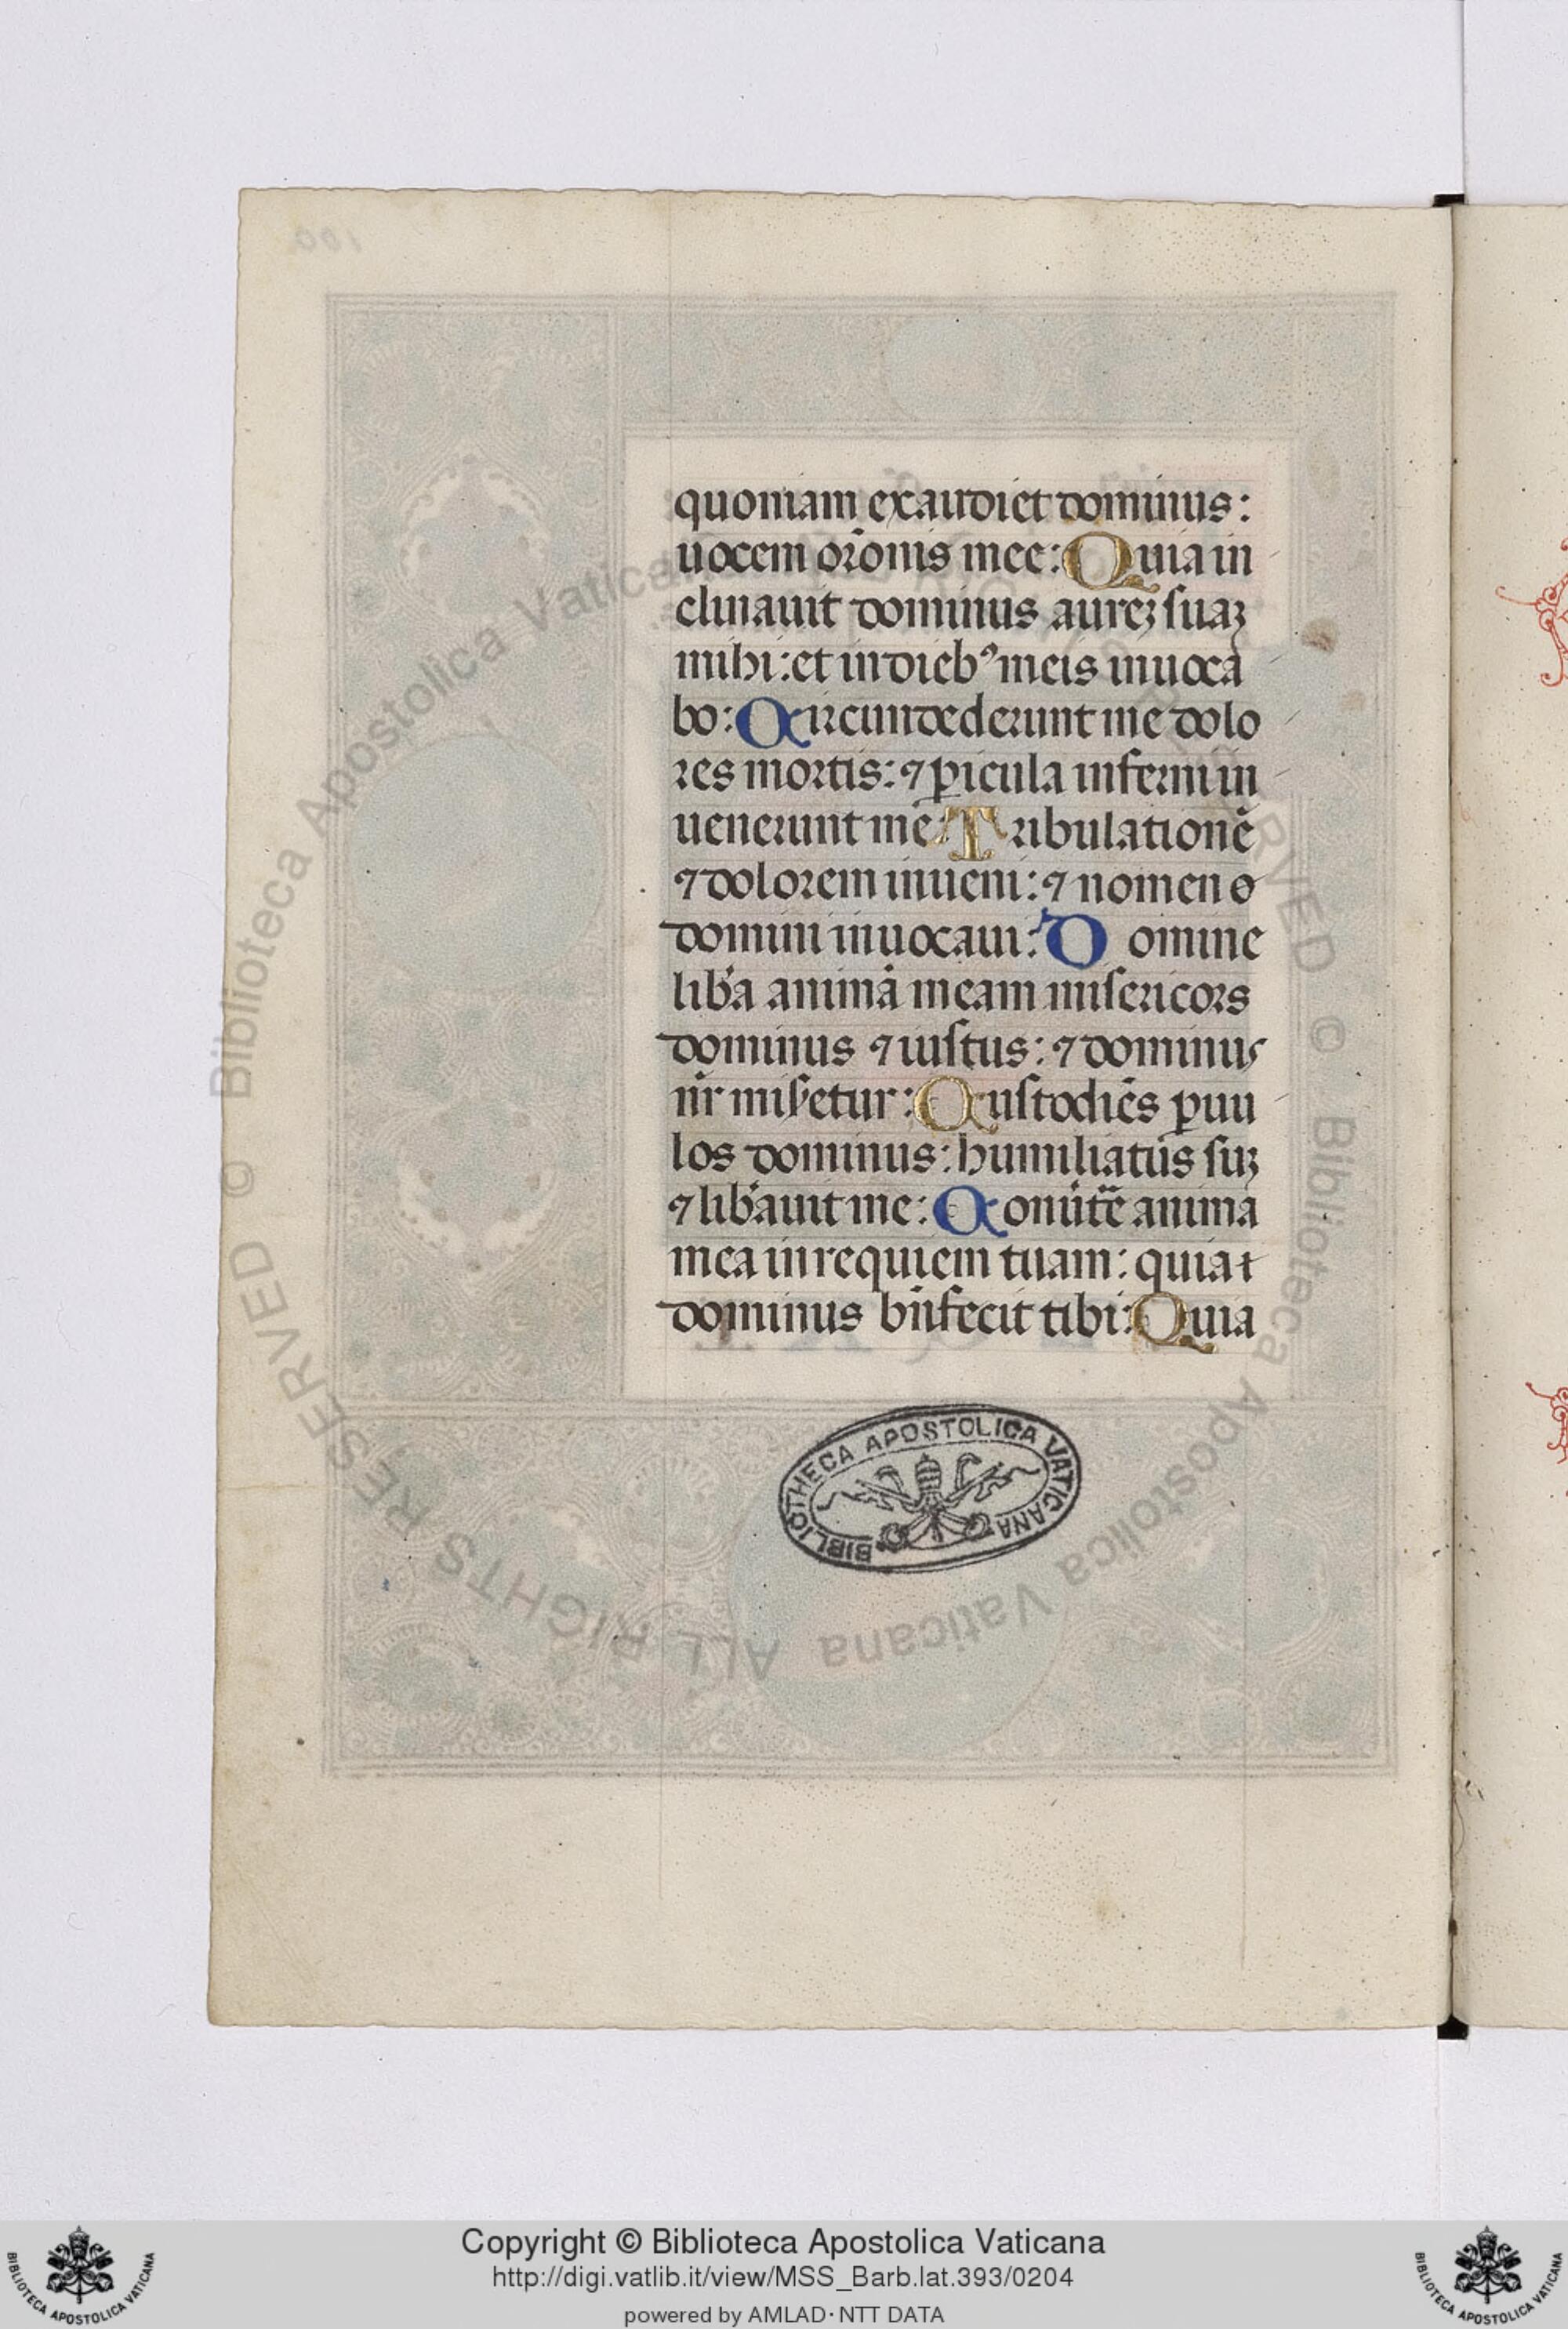 quoniam exaudiet dominus:
uocem or̄onis mee: Quia in
clinauit dominus aureꝫ suaꝫ
mihi: et in dieb⁹ meis inuoca
bo: Circumdederunt me dolo
res mortis: ⁊ ꝑicula inferni in
uenerunt me: Tribulationē
⁊ dolorem inueni: ⁊ nomen o
domini inuocaui: O omine
lib̓a animā meam misericors
dominus ⁊ iustus: ⁊ dominus
nr̄ mis̓etur: Custodiēs ꝑuu
los dominus: humiliatus̄ suꝫ
⁊ lib̓auit me: Conuṫ̄e anima
mea in requiem tuam: quia t
dominus bn̄fecit tibi: Quia
BIBLIOTHECA APOSTOLICA VATICANA
© Biblioteca Apostolica Vaticana ALL RIGHTS RESERVED
© Biblioteca Apostolica Vaticana ALL RIGHTS RESERVED
100
Copyright © Biblioteca Apostolica Vaticana
http://digi.vatlib.it/view/MSS_Barb.lat.393/0204
powered by AMLAD·NTT DATA
BIBLIOTECA APOSTOLICA VATICANA
BIBLIOTECA APOSTOLICA VATICANA